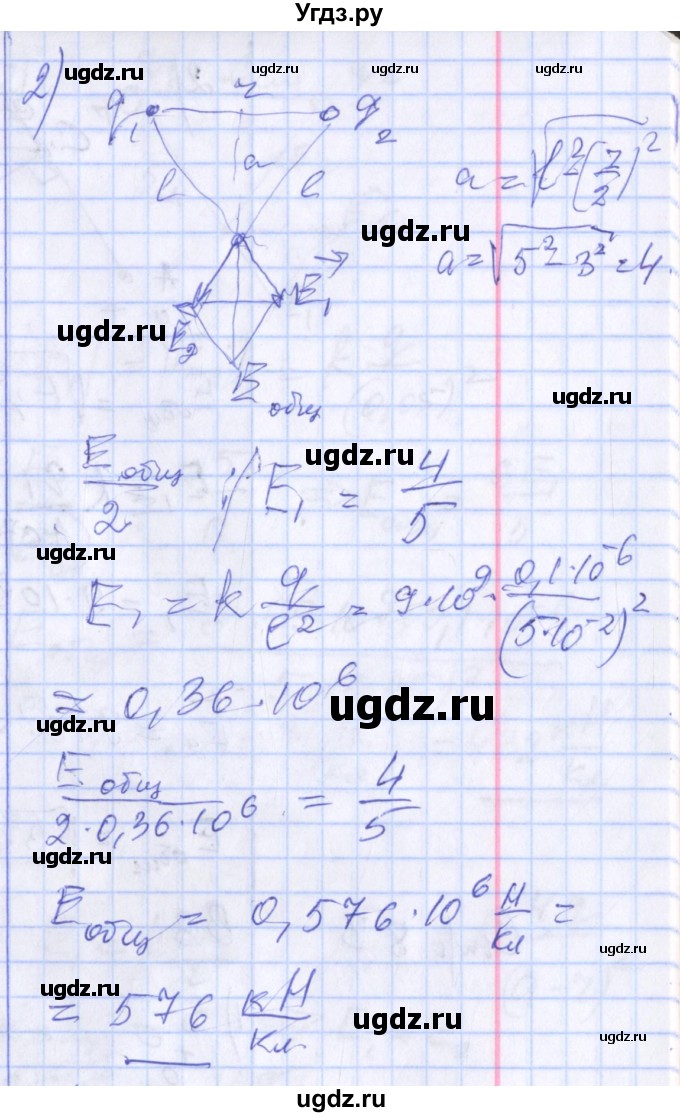 Угдз.ру
ugdz.ru ugdz.ru ugdz.ru
2)
q₁ r q₂
l a l
a = √(l² (r/2)²)
ugdz.ru
a = √(5² - 3²) = 4.
E₁
ugdz.ru
E₂
E общ
ugdz.ru
ugdz.ru
E общ / 2 : E₁ = 4/5
ugdz.ru
E₁ = k q/l² = 9·10⁹ · 0,1·10⁻⁶/(5·10⁻²)²
ugdz.ru
= 0,36·10⁶
ugdz.ru ugdz.ru
E общ / 2·0,36·10⁶ = 4/5
ugdz.ru
E общ = 0,576·10⁶ Н/Кл =
ugdz.ru
ugdz.ru
= 576 кН/Кл
ugdz.ru ugdz.ru
ugdz.ru